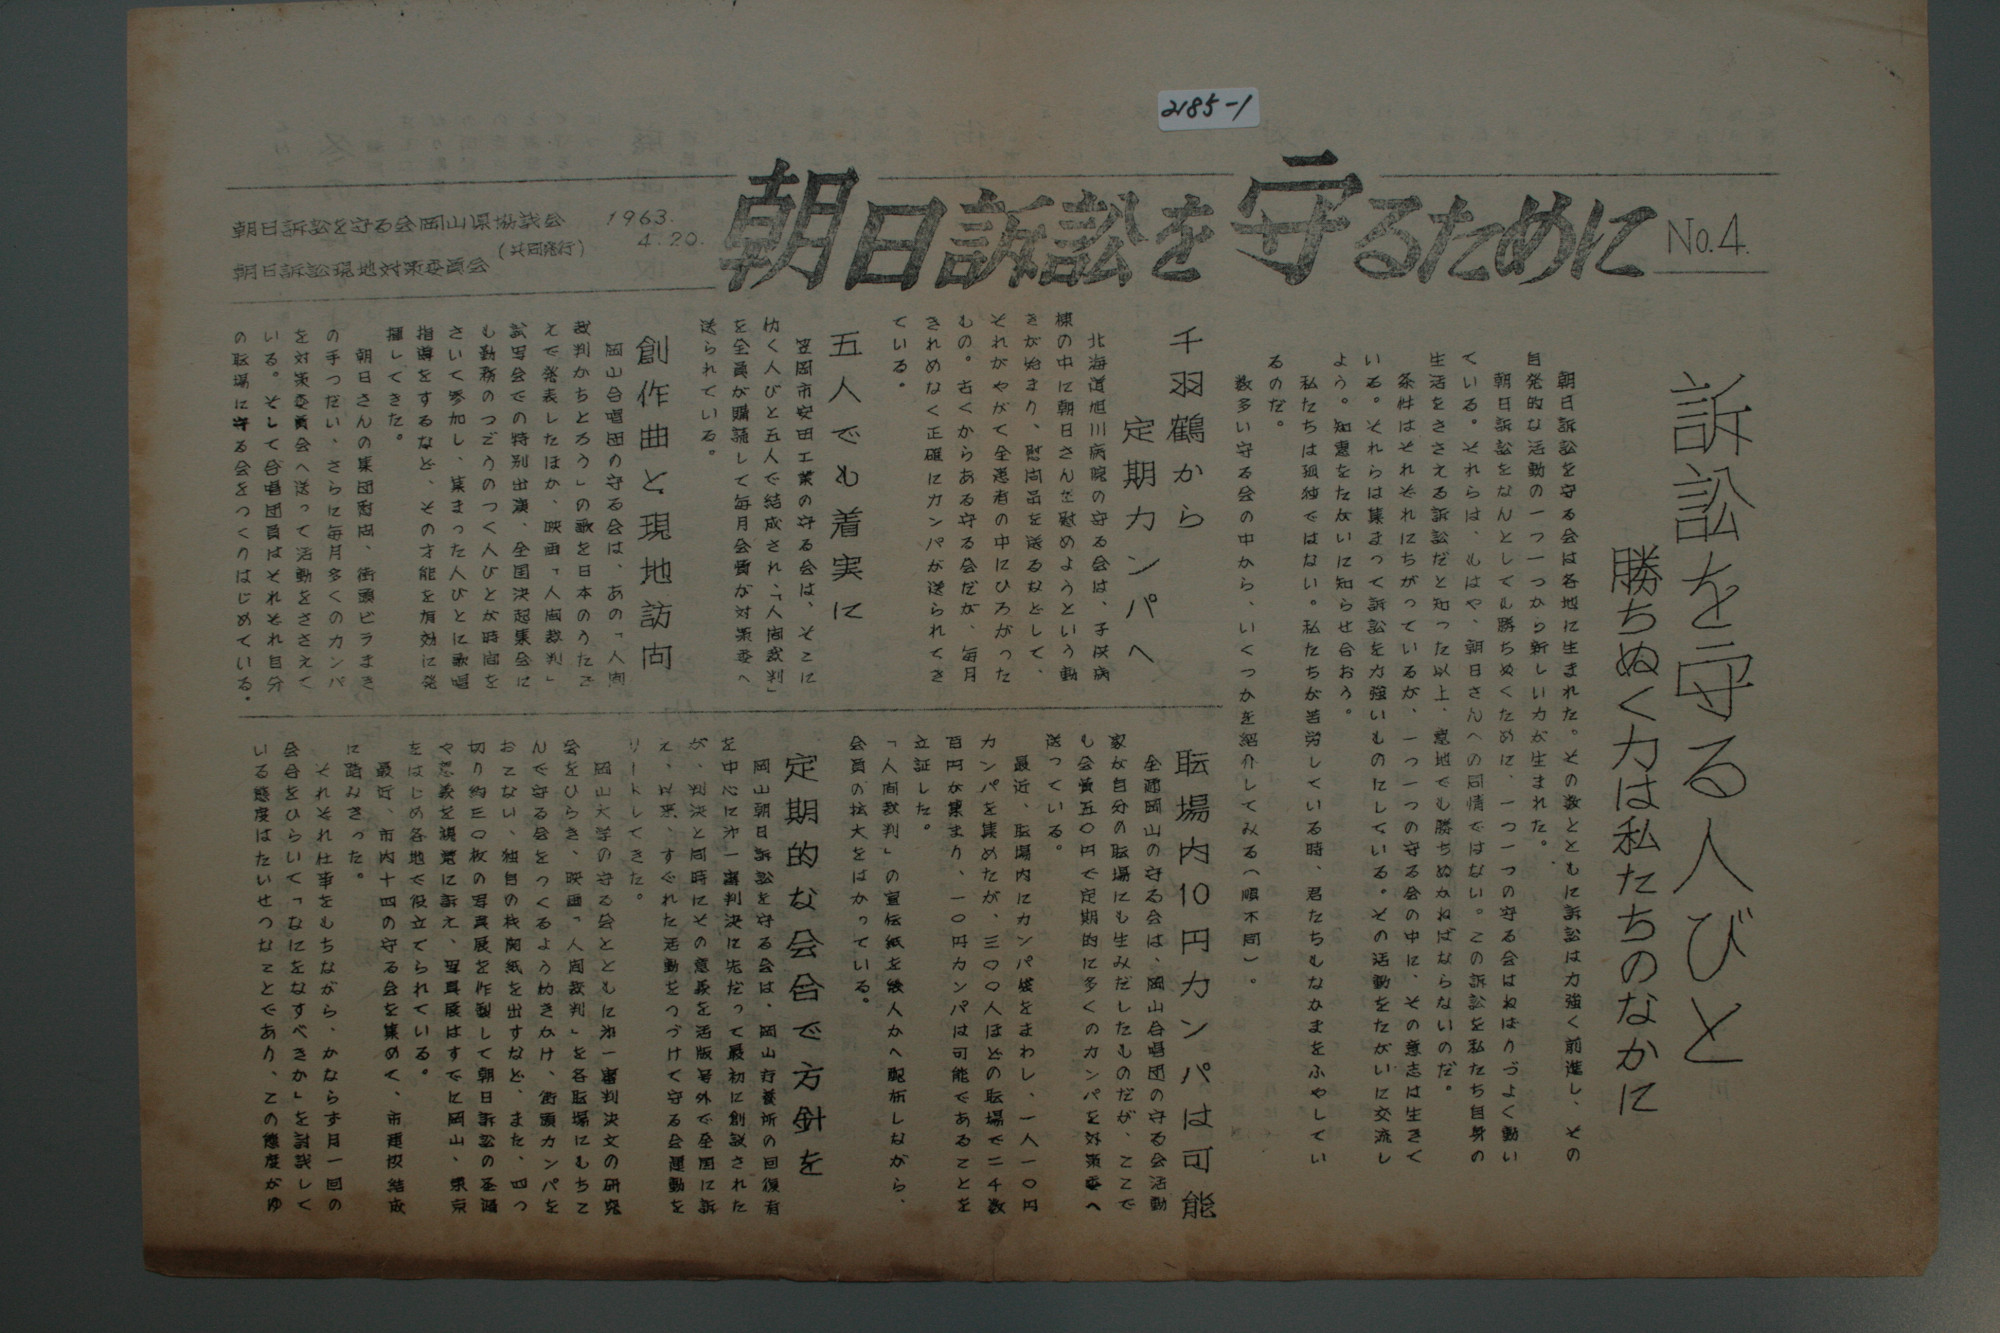 2185-1
朝日訴訟を守るために No.4.
朝日訴訟を守る会岡山県協議会
朝日訴訟現地対策委員会
(共同発行)
1963.
4.20.
訴訟を守る人びと
勝ちぬく力は私たちのなかに
朝日訴訟を守る会は各地に生まれた。その数とともに訴訟は力強く前進し、その
自発的な活動の一つ一つから新しい力が生まれた。
朝日訴訟をなんとしても勝ちぬくために、一つ一つの守る会はねばりづよく動い
ている。それらは、もはや、朝日さんへの同情ではない。この訴訟を私たち自身の
生活をささえる訴訟だと知った以上、意地でも勝ちぬかねばならないのだ。
条件はそれぞれにちがっているが、一つ一つの守る会の中に、その意志は生きて
いる。それらは集まって訴訟を力強いものにしている。その活動をたがいに交流し
よう。知恵をたがいに知らせ合おう。
私たちは孤独ではない。私たちが苦労している時、君たちもなかまをふやしてい
るのだ。
数多い守る会の中から、いくつかを紹介してみる(順不同)。
千羽鶴から
定期カンパへ
北海道旭川病院の守る会は、子供病
棟の中に朝日さんを慰めようという動
きが始まり、慰問品を送るなどして、
それがやがて全患者の中にひろがった
もの。古くからある守る会だが、毎月
きれめなく正確にカンパが送られてき
ている。
五人でも着実に
笠岡市安田工業の守る会は、そこに
仂く人びと五人で結成され、「人間裁判」
を全員が購読して毎月会費が対策委へ
送られている。
創作曲と現地訪問
岡山合唱団の守る会は、あの「人間
裁判かちとろう」の歌を日本のうたご
えで発表したほか、映画「人間裁判」
試写会での特別出演、全国決起集会に
も勤務のつごうのつく人びとが時間を
さいて参加し、集まった人びとに歌唱
指導をするなど、その才能を有効に発
揮してきた。
朝日さんの集団慰問、街頭ビラまき
の手つだい、さらに毎月多くのカンパ
を対策委員会へ送って活動をささえて
いる。そして合唱団員はそれぞれ自分
の職場に守る会をつくりはじめている。
職場内10円カンパは可能
全逓岡山の守る会は、岡山合唱団の守る会活動
家が自分の職場にも生みだしたものだが、ここで
も会費五〇円で定期的に多くのカンパを対策委へ
送っている。
最近、職場内にカンパ袋をまわし、一人一〇円
カンパを集めたが、三〇〇人ほどの職場で二千数
百円が集まり、一〇円カンパは可能であることを
立証した。
「人間裁判」の宣伝紙を幾人かへ配布しながら、
会員の拡大をはかっている。
定期的な会合で方針を
岡山朝日訴訟を守る会は、岡山療養所の回復者
を中心に第一審判決に先だって最初に創設された
が、判決と同時にその意義を活版号外で全国に訴
え、以来、すぐれた活動をつづけて守る会運動を
リードしてきた。
岡山大学の守る会とともに第一審判決文の研究
会をひらき、映画「人間裁判」を各職場にもちこ
んで守る会をつくるよう仂きかけ、街頭カンパを
おこない、独自の機関紙を出すなど、また、四つ
切り約三〇枚の写真展を作製して朝日訴訟の歪曲
や意義を視覚に訴え、写真展はすでに岡山、東京
をはじめ各地で役立てられている。
最近、市内十四の守る会を集めて、市連協結成
に踏みきった。
それぞれ仕事をもちながら、かならず月一回の
会合をひらいて「なにをなすべきか」を討議して
いる態度はたいせつなことであり、この態度がゆ